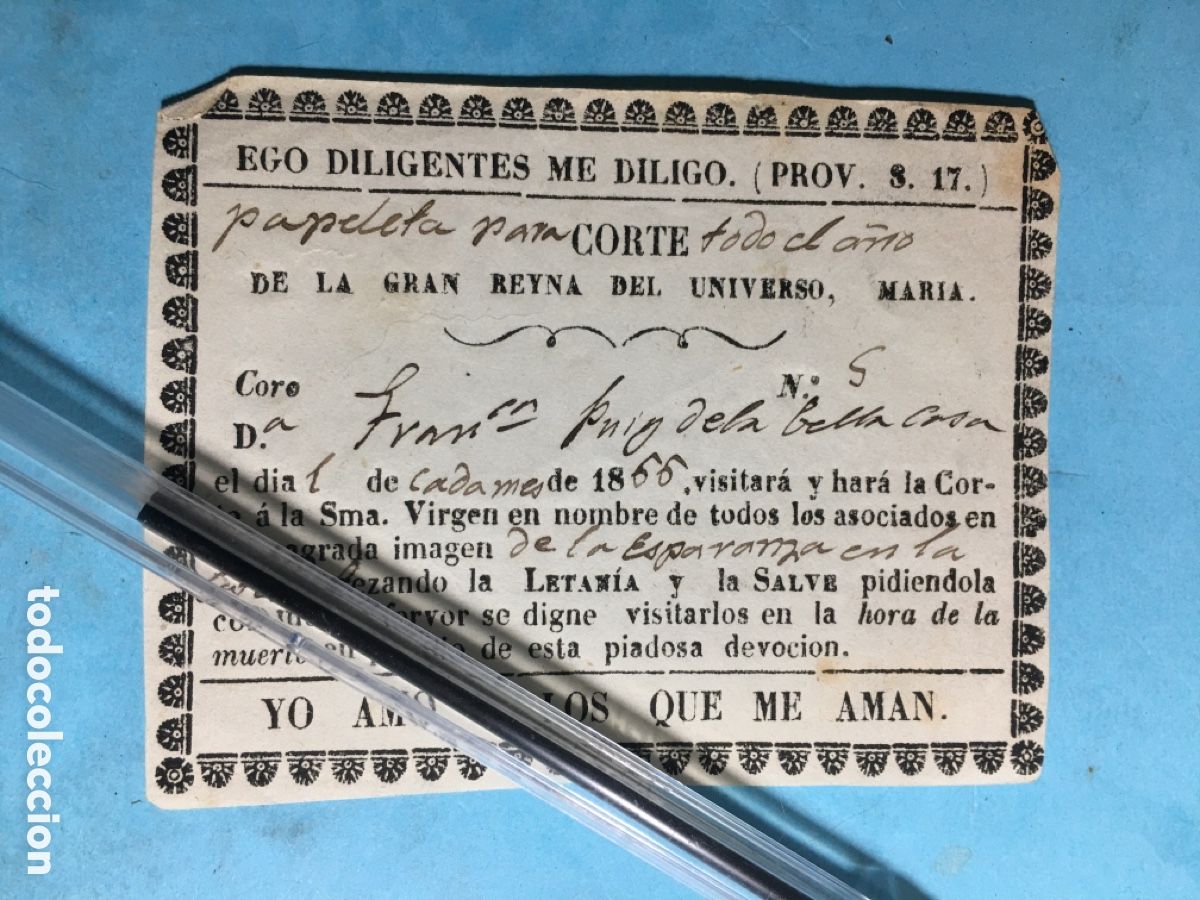 EGO DILIGENTES ME DILIGO. (PROV. 8. 17.)
papeleta para CORTE todo el año
DE LA GRAN REYNA DEL UNIVERSO, MARIA.
Coro N.º 5
D.ª Fran.ca Puig de la bella casa
el dia 1 de cada mes de 1866, visitará y hará la Cor-
á la Sma. Virgen en nombre de todos los asociados en
sagrada imagen de la Esparanza en la
rezando la LETANÍA y la SALVE pidiendola
fervor se digne visitarlos en la hora de la
muerte en de esta piadosa devocion.
YO AMO LOS QUE ME AMAN.
todocoleccion